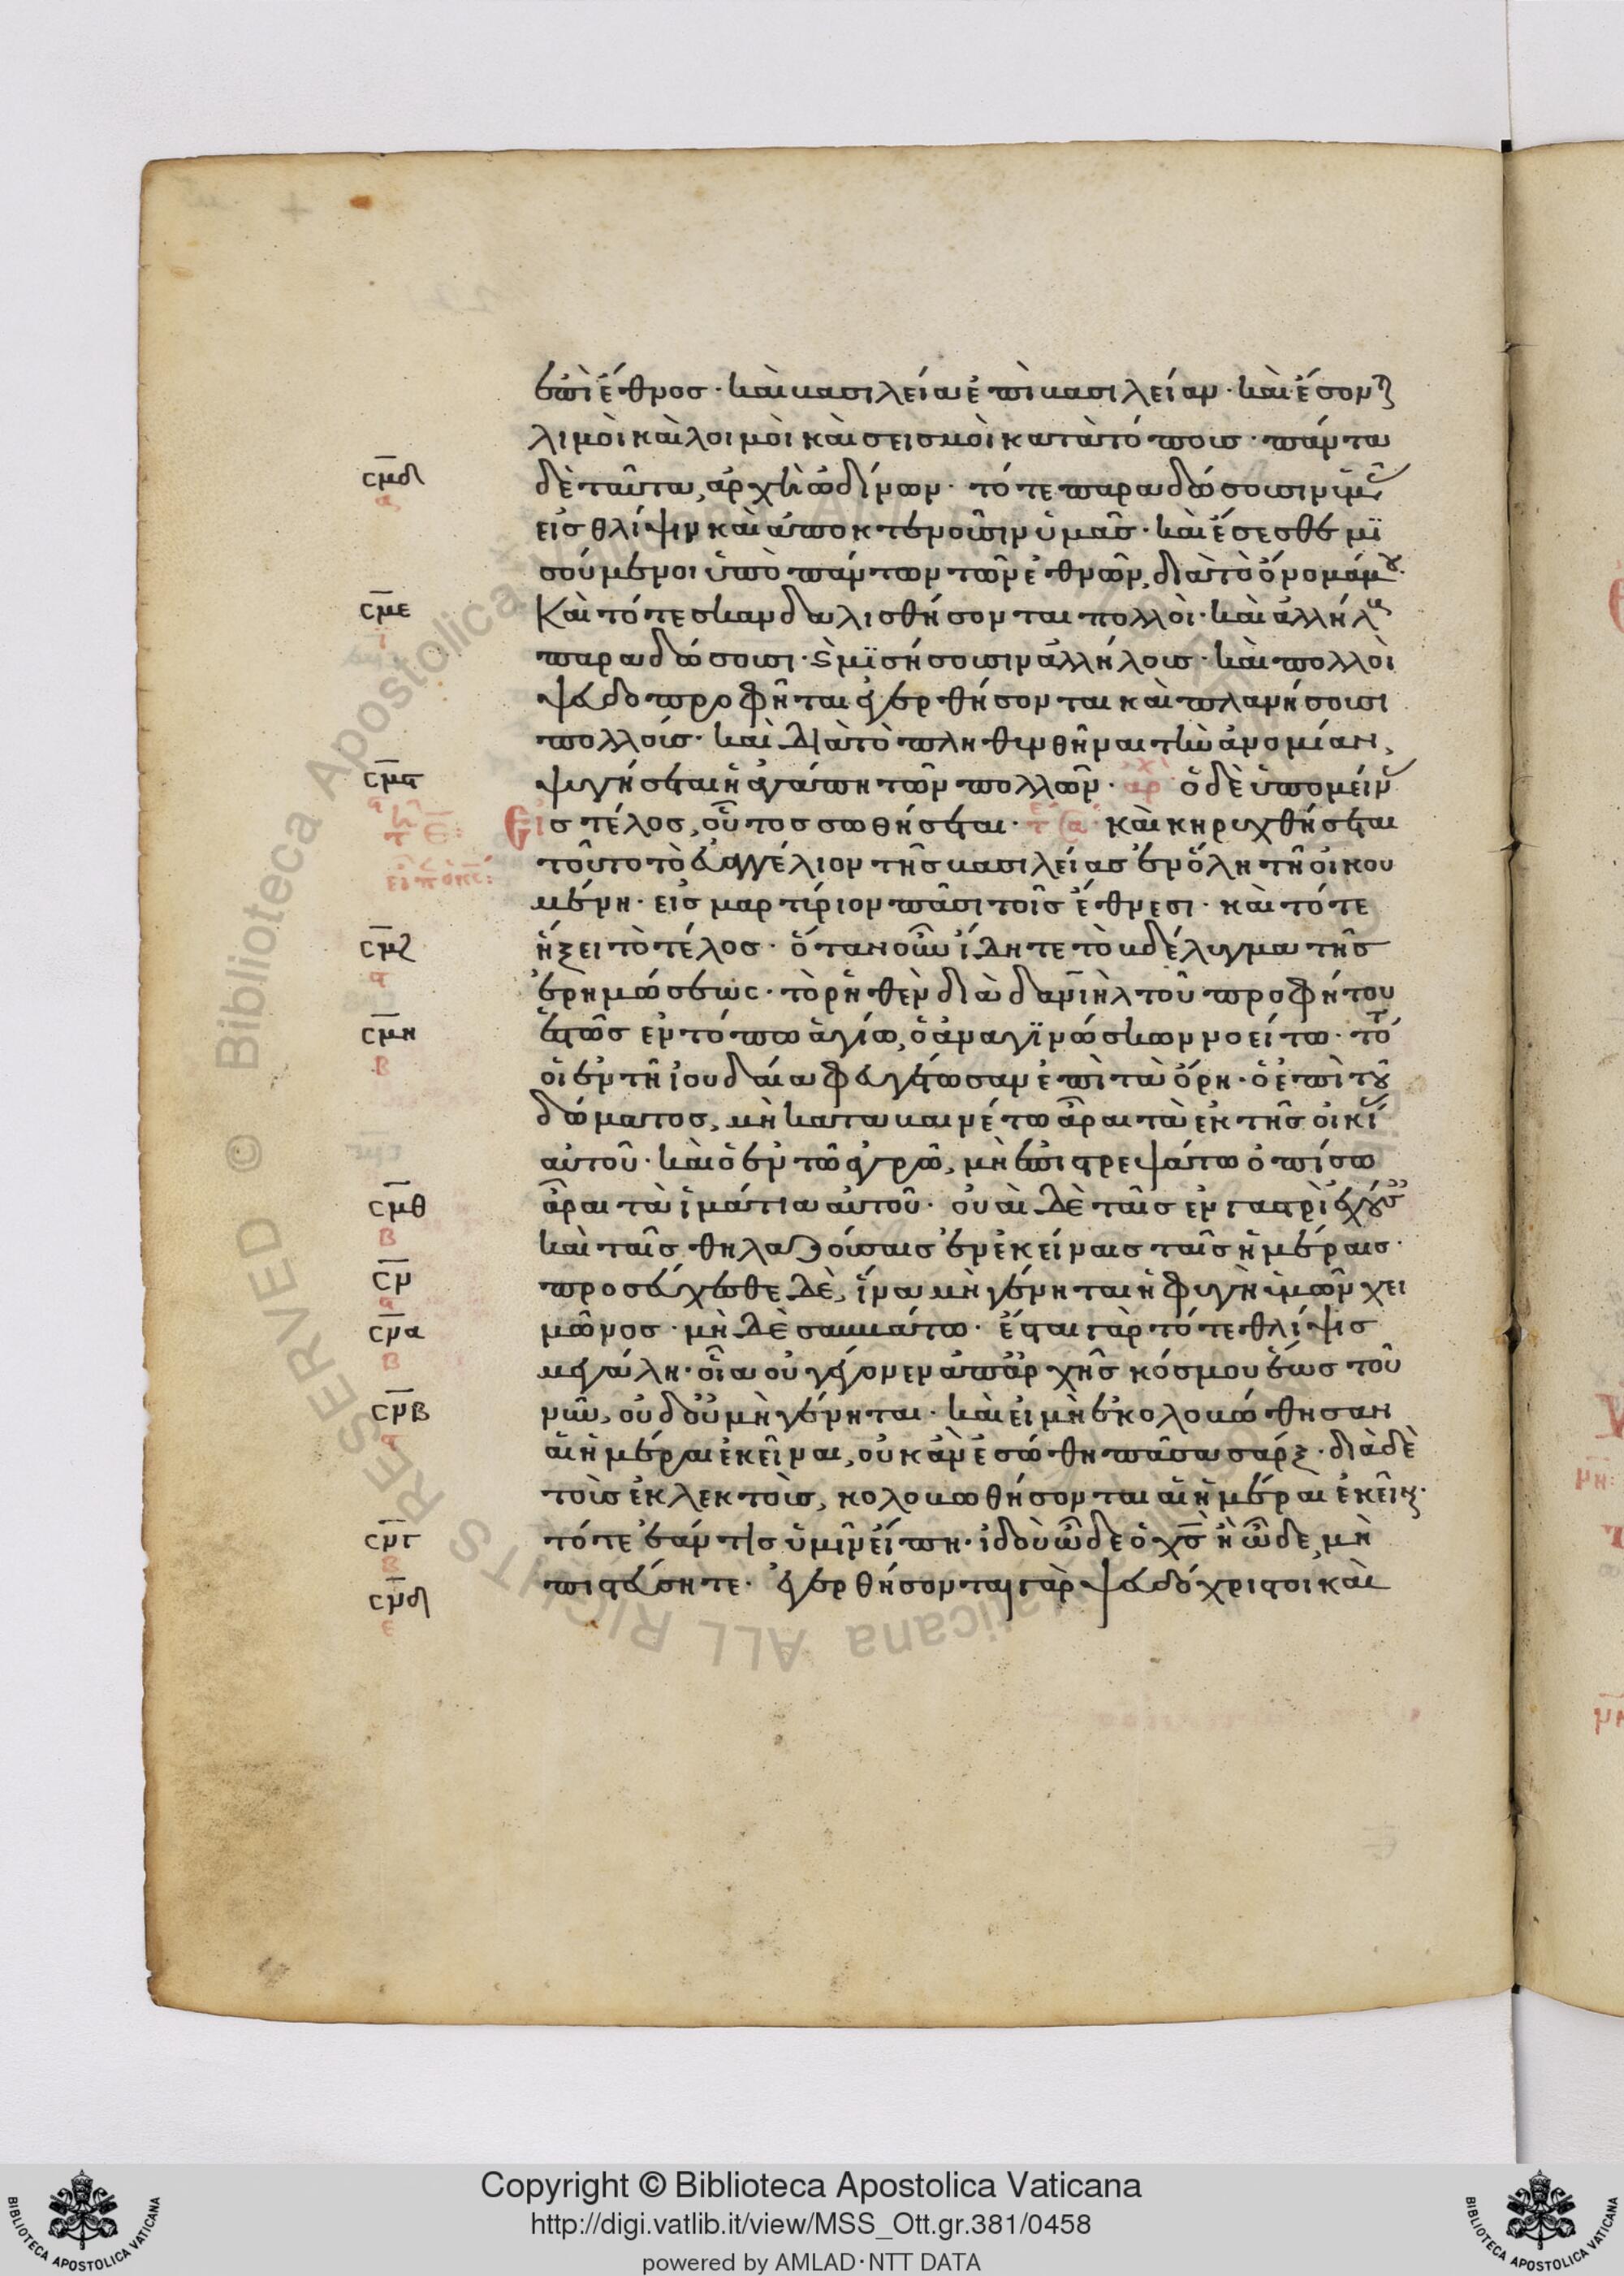 ἐπὶ ἔθνος· καὶ βασιλεία ἐπὶ βασιλείαν· καὶ ἔσον
λιμοὶ καὶ λοιμοὶ καὶ σεισμοὶ κατὰ τόπους· πάντα
σμδ δὲ ταῦτα, ἀρχὴ ὠδίνων· τότε παραδώσουσιν ὑμ
εἰς θλίψιν καὶ ἀποκτενοῦσιν ὑμᾶς· καὶ ἔσεσθε μϊ
σούμενοι ὑπὸ πάντων τῶν ἐθνῶν, διὰ τὸ ὄνομά μου·
σμε Καὶ τότε σκανδαλισθήσονται πολλοὶ· καὶ ἀλλήλ
παραδώσουσι· ϛ μϊσήσουσιν ἀλλήλους· καὶ πολλοὶ
ψευδοπροφῆται ἐγερθήσονται καὶ πλανήσουσι
πολλούς· καὶ διὰ τὸ πληθινθῆναι τὴν ἀνομίαν,
σμϛ ψυγήσεται ἡ ἀγάπη τῶν πολλῶν· ἀρχ ὁ δὲ ὑπομείν
Εἰς τέλος, οὗτος σωθήσεται· καὶ κηρυχθήσεται
τοῦτο τὸ εὐαγγέλιον τῆς βασιλείας ἐν ὅλη τῆ οἰκου
μένη· εἰς μαρτίριον πᾶσι τοῖς ἔθνεσι· καὶ τότε
σμζ ἥξει τὸ τέλος· ὅταν οὖν ἴδητε τὸ βδέλυγμα τῆς
ἐρημώσεως· τὸ ῥηθὲν διὰ δανιὴλ τοῦ προφήτου
σμη ἑστὼς ἐν τόπω ἁγίω, ὁ ἀναγϊνώσκων νοείτω· τότ
οἱ ἐν τῆ ἰουδαία φευγέτωσαν ἐπὶ τὰ ὄρη· ὁ ἐπὶ τοῦ
δώματος, μὴ καταβαινέτω ἆραι τὰ ἐκ τῆς οἰκί
αὐτοῦ· καὶ ὁ ἐν τῶ ἀγρῶ, μὴ ἐπιστρεψάτω ὀπίσω
σμθ ἆραι τὰ ἱμάτια αὐτοῦ· οὐαὶ δὲ ταῖς ἐν γαστρὶ ἐχούσ
καὶ ταῖς θηλαζούσαις ἐν ἐκείναις ταῖς ἡμέραις·
σν προσεύχεσθε δὲ, ἵνα μὴ γένηται ἡ φυγὴ ὑμῶν χει
σνα μῶνος· μὴ δὲ σαββάτω· ἔσται γὰρ τότε θλίψις
μεγάλη· οἵα οὐ γέγονεν ἀπἀρχῆς κόσμου ἕως τοῦ
σνβ νῦν, οὐδοὐ μὴ γένηται· καὶ εἰ μὴ ἐκολοβώθησαν
αἱ ἡμέραι ἐκεῖναι, οὐκ ἂν ἐσώθη πᾶσα σάρξ· διὰ δὲ
τοὺς ἐκλεκτοὺς, κολοβωθήσονται αἱ ἡμέραι ἐκεῖν·
σνγ τότε ἐάν τις ὑμῖν εἴπη· ἰδοὺ ὧδε ὁ χς ἢ ὧδε, μὴ
σνδ πιστεύσητε· ἐγερθήσονται γὰρ ψευδόχριστοι καὶ
Copyright © Biblioteca Apostolica Vaticana
http://digi.vatlib.it/view/MSS_Ott.gr.381/0458
powered by AMLAD·NTT DATA
BIBLIOTECA APOSTOLICA VATICANA
BIBLIOTECA APOSTOLICA VATICANA